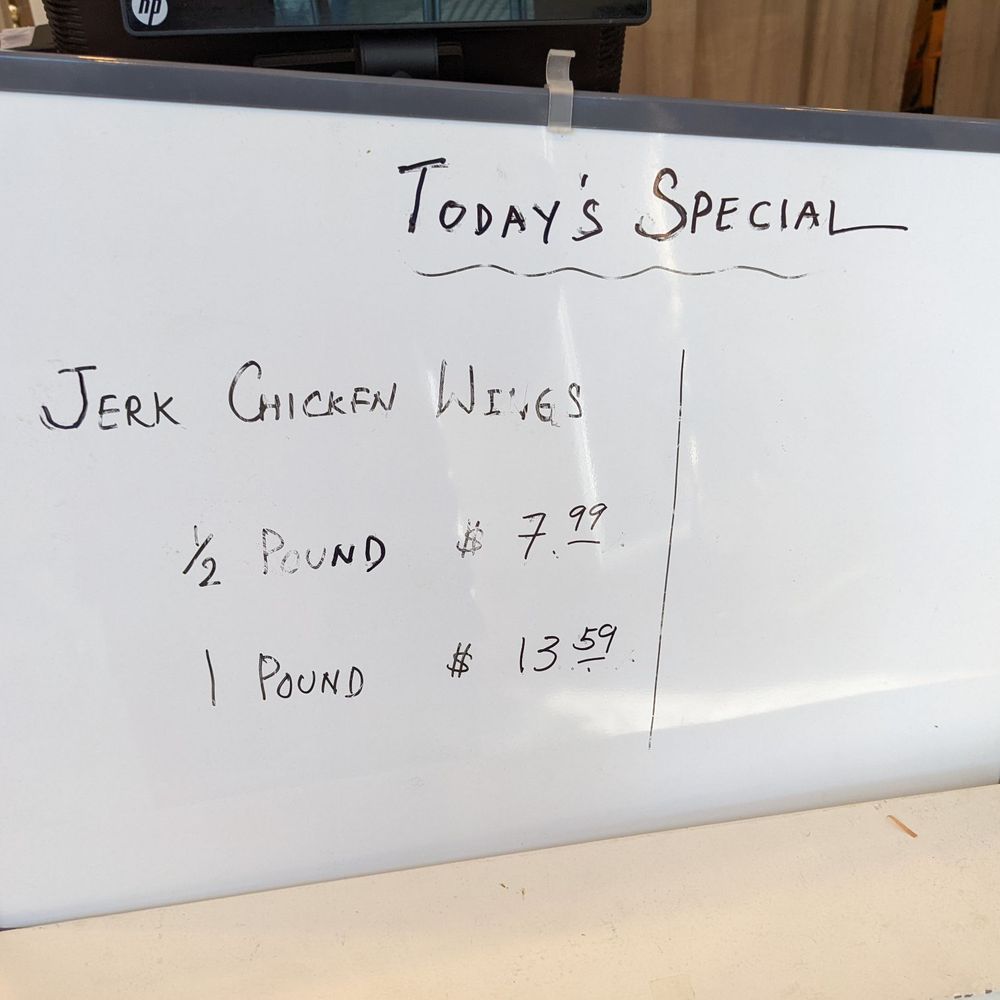 hp
TODAY'S SPECIAL
JERK CHICKEN WINGS
1/2 POUND $ 7.99
1 POUND $ 13.59